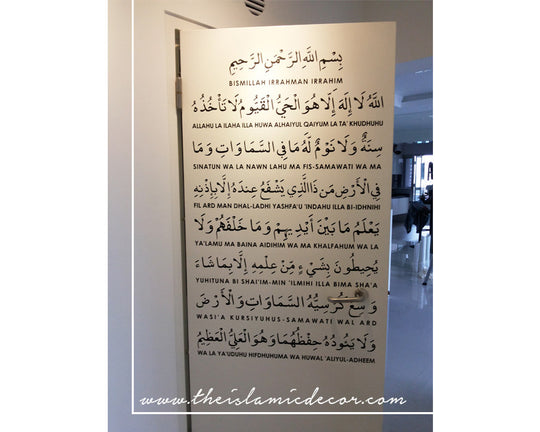 بِسْمِ اللَّهِ الرَّحْمَنِ الرَّحِيمِ
BISMILLAH IRRAHMAN IRRAHIM
اللَّهُ لَا إِلَهَ إِلَّا هُوَ الْحَيُّ الْقَيُّومُ لَا تَأْخُذُهُ
ALLAHU LA ILAHA ILLA HUWA ALHAIYUL QAIYUM LA TA' KHUDHUHU
سِنَةٌ وَلَا نَوْمٌ لَهُ مَا فِي السَّمَاوَاتِ وَمَا
SINATUN WA LA NAWN LAHU MA FIS-SAMAWATI WA MA
فِي الْأَرْضِ مَنْ ذَا الَّذِي يَشْفَعُ عِنْدَهُ إِلَّا بِإِذْنِهِ
FIL ARD MAN DHAL-LADHI YASHFA'U 'INDAHU ILLA BI-IDHNIHI
يَعْلَمُ مَا بَيْنَ أَيْدِيهِمْ وَمَا خَلْفَهُمْ وَلَا
YA'LAMU MA BAINA AIDIHIM WA MA KHALFAHUM WA LA
يُحِيطُونَ بِشَيْءٍ مِنْ عِلْمِهِ إِلَّا بِمَا شَاءَ
YUHITUNA BI SHAI'IM-MIN 'ILMIHI ILLA BIMA SHA'A
وَسِعَ كُرْسِيُّهُ السَّمَاوَاتِ وَالْأَرْضَ
WASI'A KURSIYUHUS-SAMAWATI WAL ARD
وَلَا يَئُودُهُ حِفْظُهُمَا وَهُوَ الْعَلِيُّ الْعَظِيمُ
WA LA YA'UDUHU HIFDHUHUMA WA HUWAL 'ALIYUL-ADHEEM
www.theislamicdecor.com